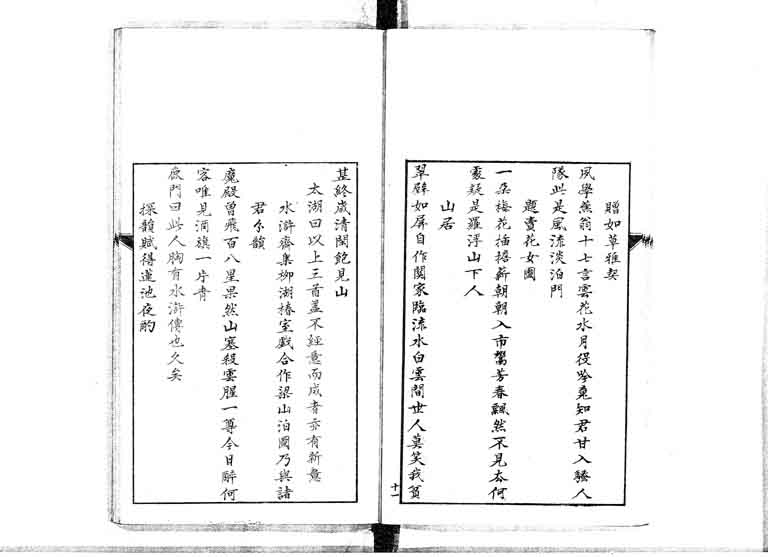 贈如草雅契
夙學蕉翁十七言雲花水月役吟魂知君甘入騷人
隊此是風流淡泊門
題賣花女圖
一朵梅花插搭新朝朝入市鬻芳春飄然不見春何
處疑是羅浮山下人
山居
翠壁如屏自作關家臨流水白雲間世人莫笑我貧
十一
甚終歲清閑飽見山
太湖曰以上三首蓋不經意而成者亦有新意
水滸齋集柳湖椿室戲合作梁山泊圖乃與諸
君分韻
魔殿曾飛百八星果然山塞殺雲腥一尊今日醉何
客唯見酒旗一片青
鹿門曰此人胸有水滸傳也久矣
探韻賦得蓮池夜酌